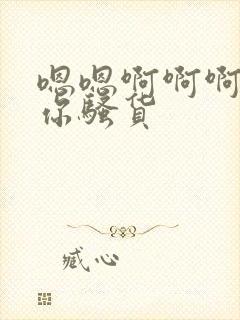 嗯嗯啊啊啊
你骚货
臧心